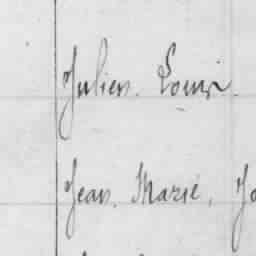 Julien. Louis.
Jean. Marie, Jo